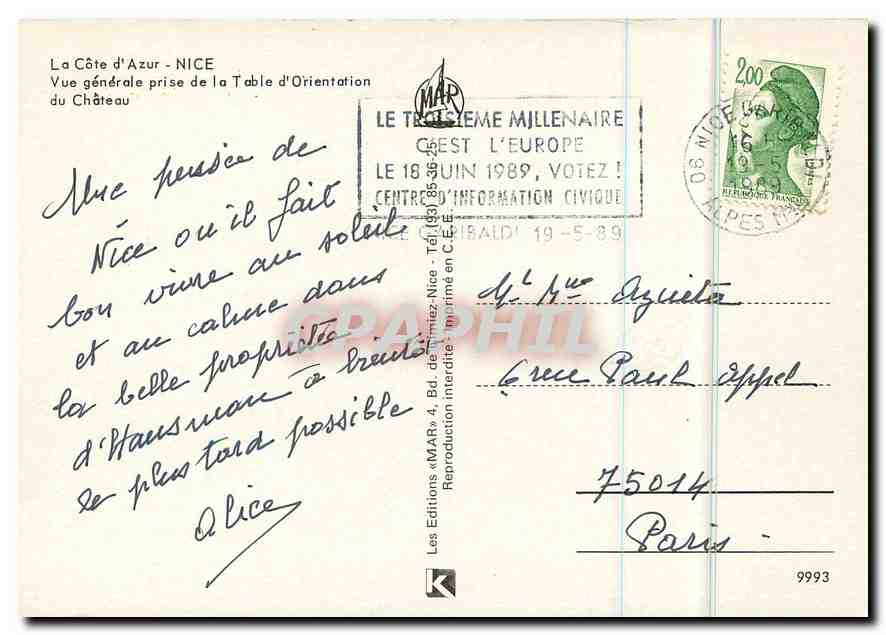 La Côte d'Azur - NICE
Vue générale prise de la Table d'Orientation
du Château
Une pensée de
Nice où il fait
bon vivre au soleil
et au calme dans
la belle propriété
d'Hausman à bientôt
le plus tard possible
Alice
MAR
LE TROISIEME MILLENAIRE
C'EST L'EUROPE
LE 18 JUIN 1989, VOTEZ !
CENTRE D'INFORMATION CIVIQUE
NICE GARIBALDI 19-5-89
Les Editions «MAR» 4, Bd. de Cimiez-Nice - Tél (93) 85-36-25
Reproduction interdite - Imprimé en C.E.E.
2,00
REPUBLIQUE FRANÇAISE
06 NICE GARIBALDI
16
19-5
1989
ALPES MMES
6 rue Paul Appel
75014
Paris
K
9993
CPAPHIL